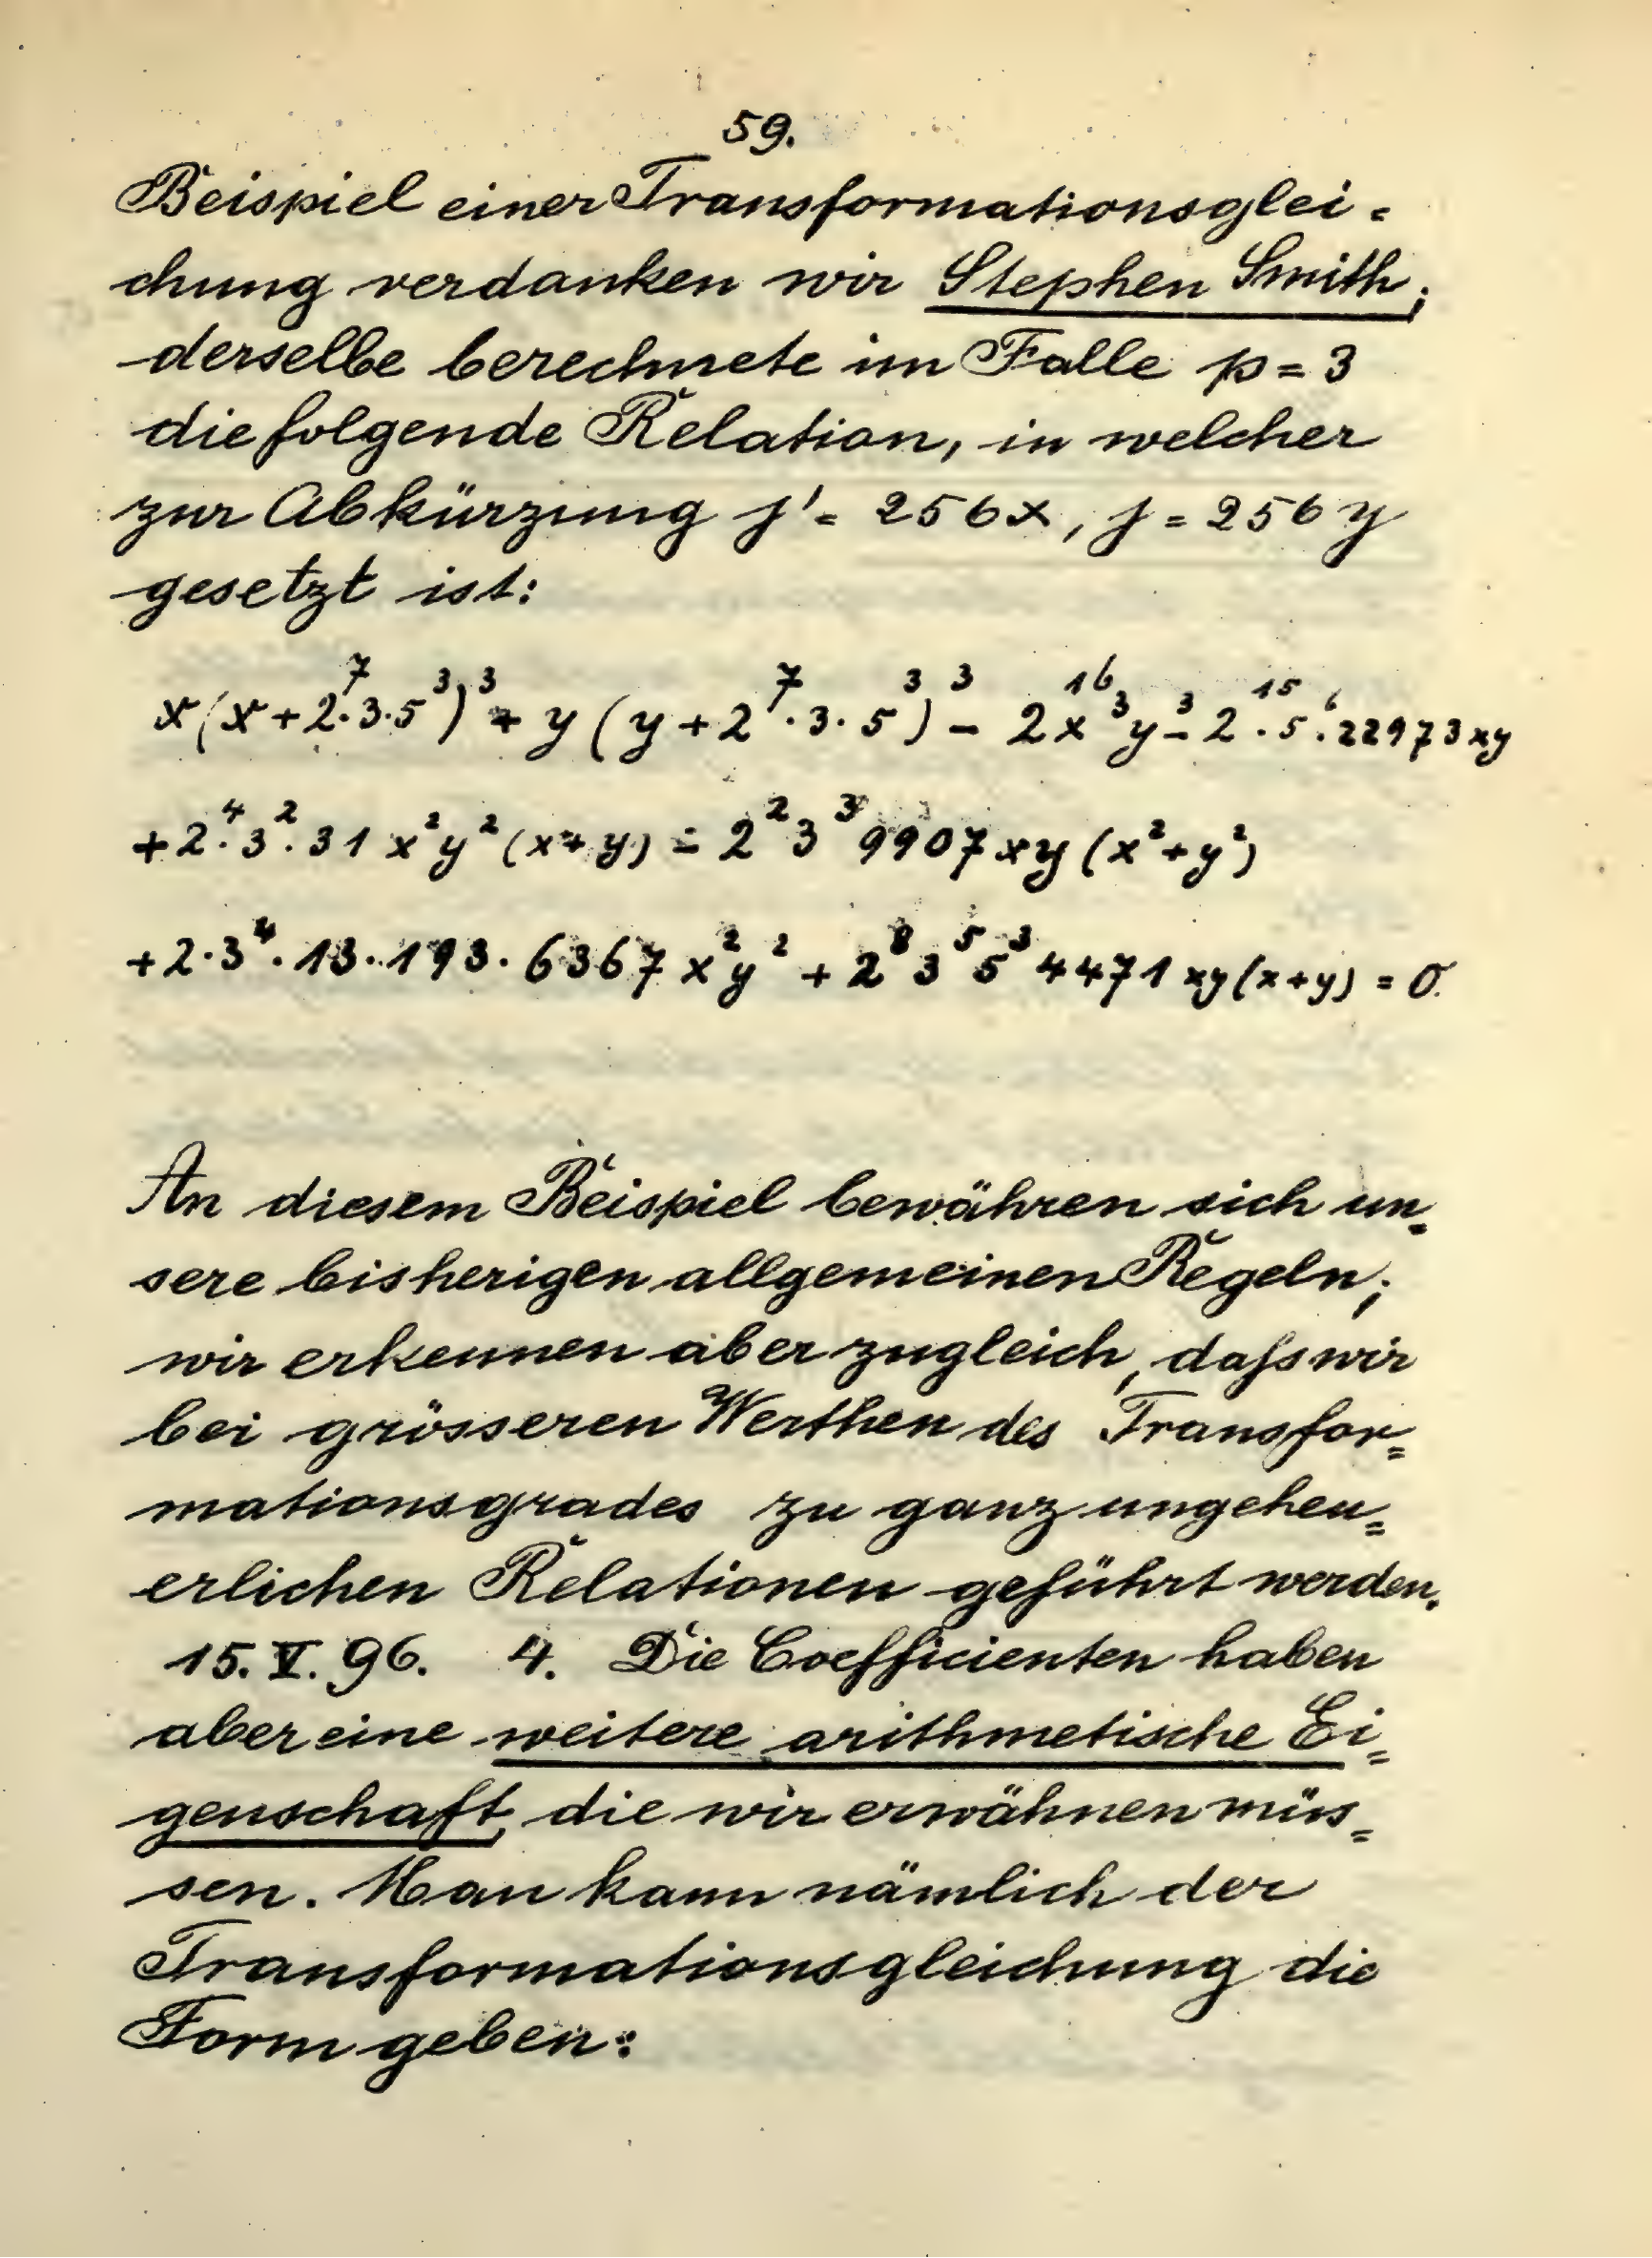 59.
Beispiel einer Transformationsglei=
chung verdanken wir Stephen Smith;
derselbe berechnete im Falle p = 3
die folgende Relation, in welcher
zur Abkürzung j' = 256x, j = 256y
gesetzt ist:
x(x+2⁷·3·5³)³ + y(y+2⁷·3·5³)³ - 2¹⁶x³y³ - 2¹⁵·5⁶·22973xy
+2⁴·3²·31 x²y²(x+y) - 2²3³9907xy(x²+y²)
+2·3⁴·13·193·6367x²y² + 2⁸3⁵5³4471xy(x+y) = 0.
An diesem Beispiel bewähren sich un=
sere bisherigen allgemeinen Regeln;
wir erkennen aber zugleich, daſs wir
bei grösseren Werthen des Transfor=
mationsgrades zu ganz ungeheu=
erlichen Relationen geführt werden.
15. V. 96. 4. Die Coefficienten haben
aber eine weitere arithmetische Ei=
genschaft, die wir erwähnen müs=
sen. Man kann nämlich der
Transformationsgleichung die
Form geben: